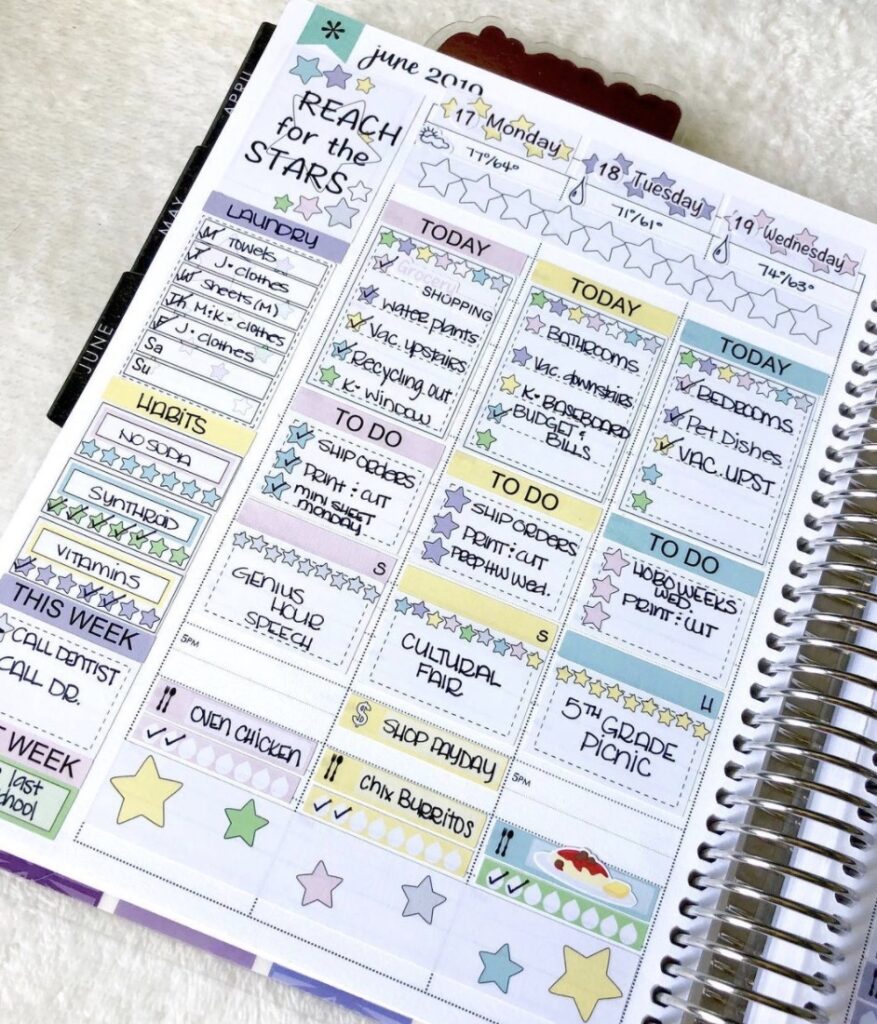 *
june 2019
APRIL
MAY
JUNE
REACH
for the
STARS
LAUNDRY
M Towels
T J. clothes
W Sheets (M)
Th M:K. clothes
F J. clothes
Sa
Su
HABITS
NO SODA
SYNTHROID
VITAMINS
THIS WEEK
CALL DENTIST
CALL DR.
T WEEK
last
school
17 Monday
77°/64°
TODAY
Grocery
SHOPPING
WATER PLANTS
VAC. UPSTAIRS
RECYCLING OUT
K. WINDOW
TO DO
SHIP ORDERS
PRINT : CUT
MINI SHEET
MONDAY
S
GENIUS
HOUR
SPEECH
5PM
OVEN CHICKEN
18 Tuesday
71°/61°
TODAY
BATHROOMS
VAC. downstairs
K. BASEBOARD
BUDGET :
BILLS
TO DO
SHIP ORDERS
PRINT : CUT
PREP HW Wed.
S
CULTURAL
FAIR
$ SHOP PAYDAY
CHIX BURRITOS
19 Wednesday
74°/63°
TODAY
BEDROOMS
Pet Dishes
VAC. UPST
TO DO
HOBO WEEKS
WED.
PRINT : CUT
U
5TH GRADE
PICNIC
5PM